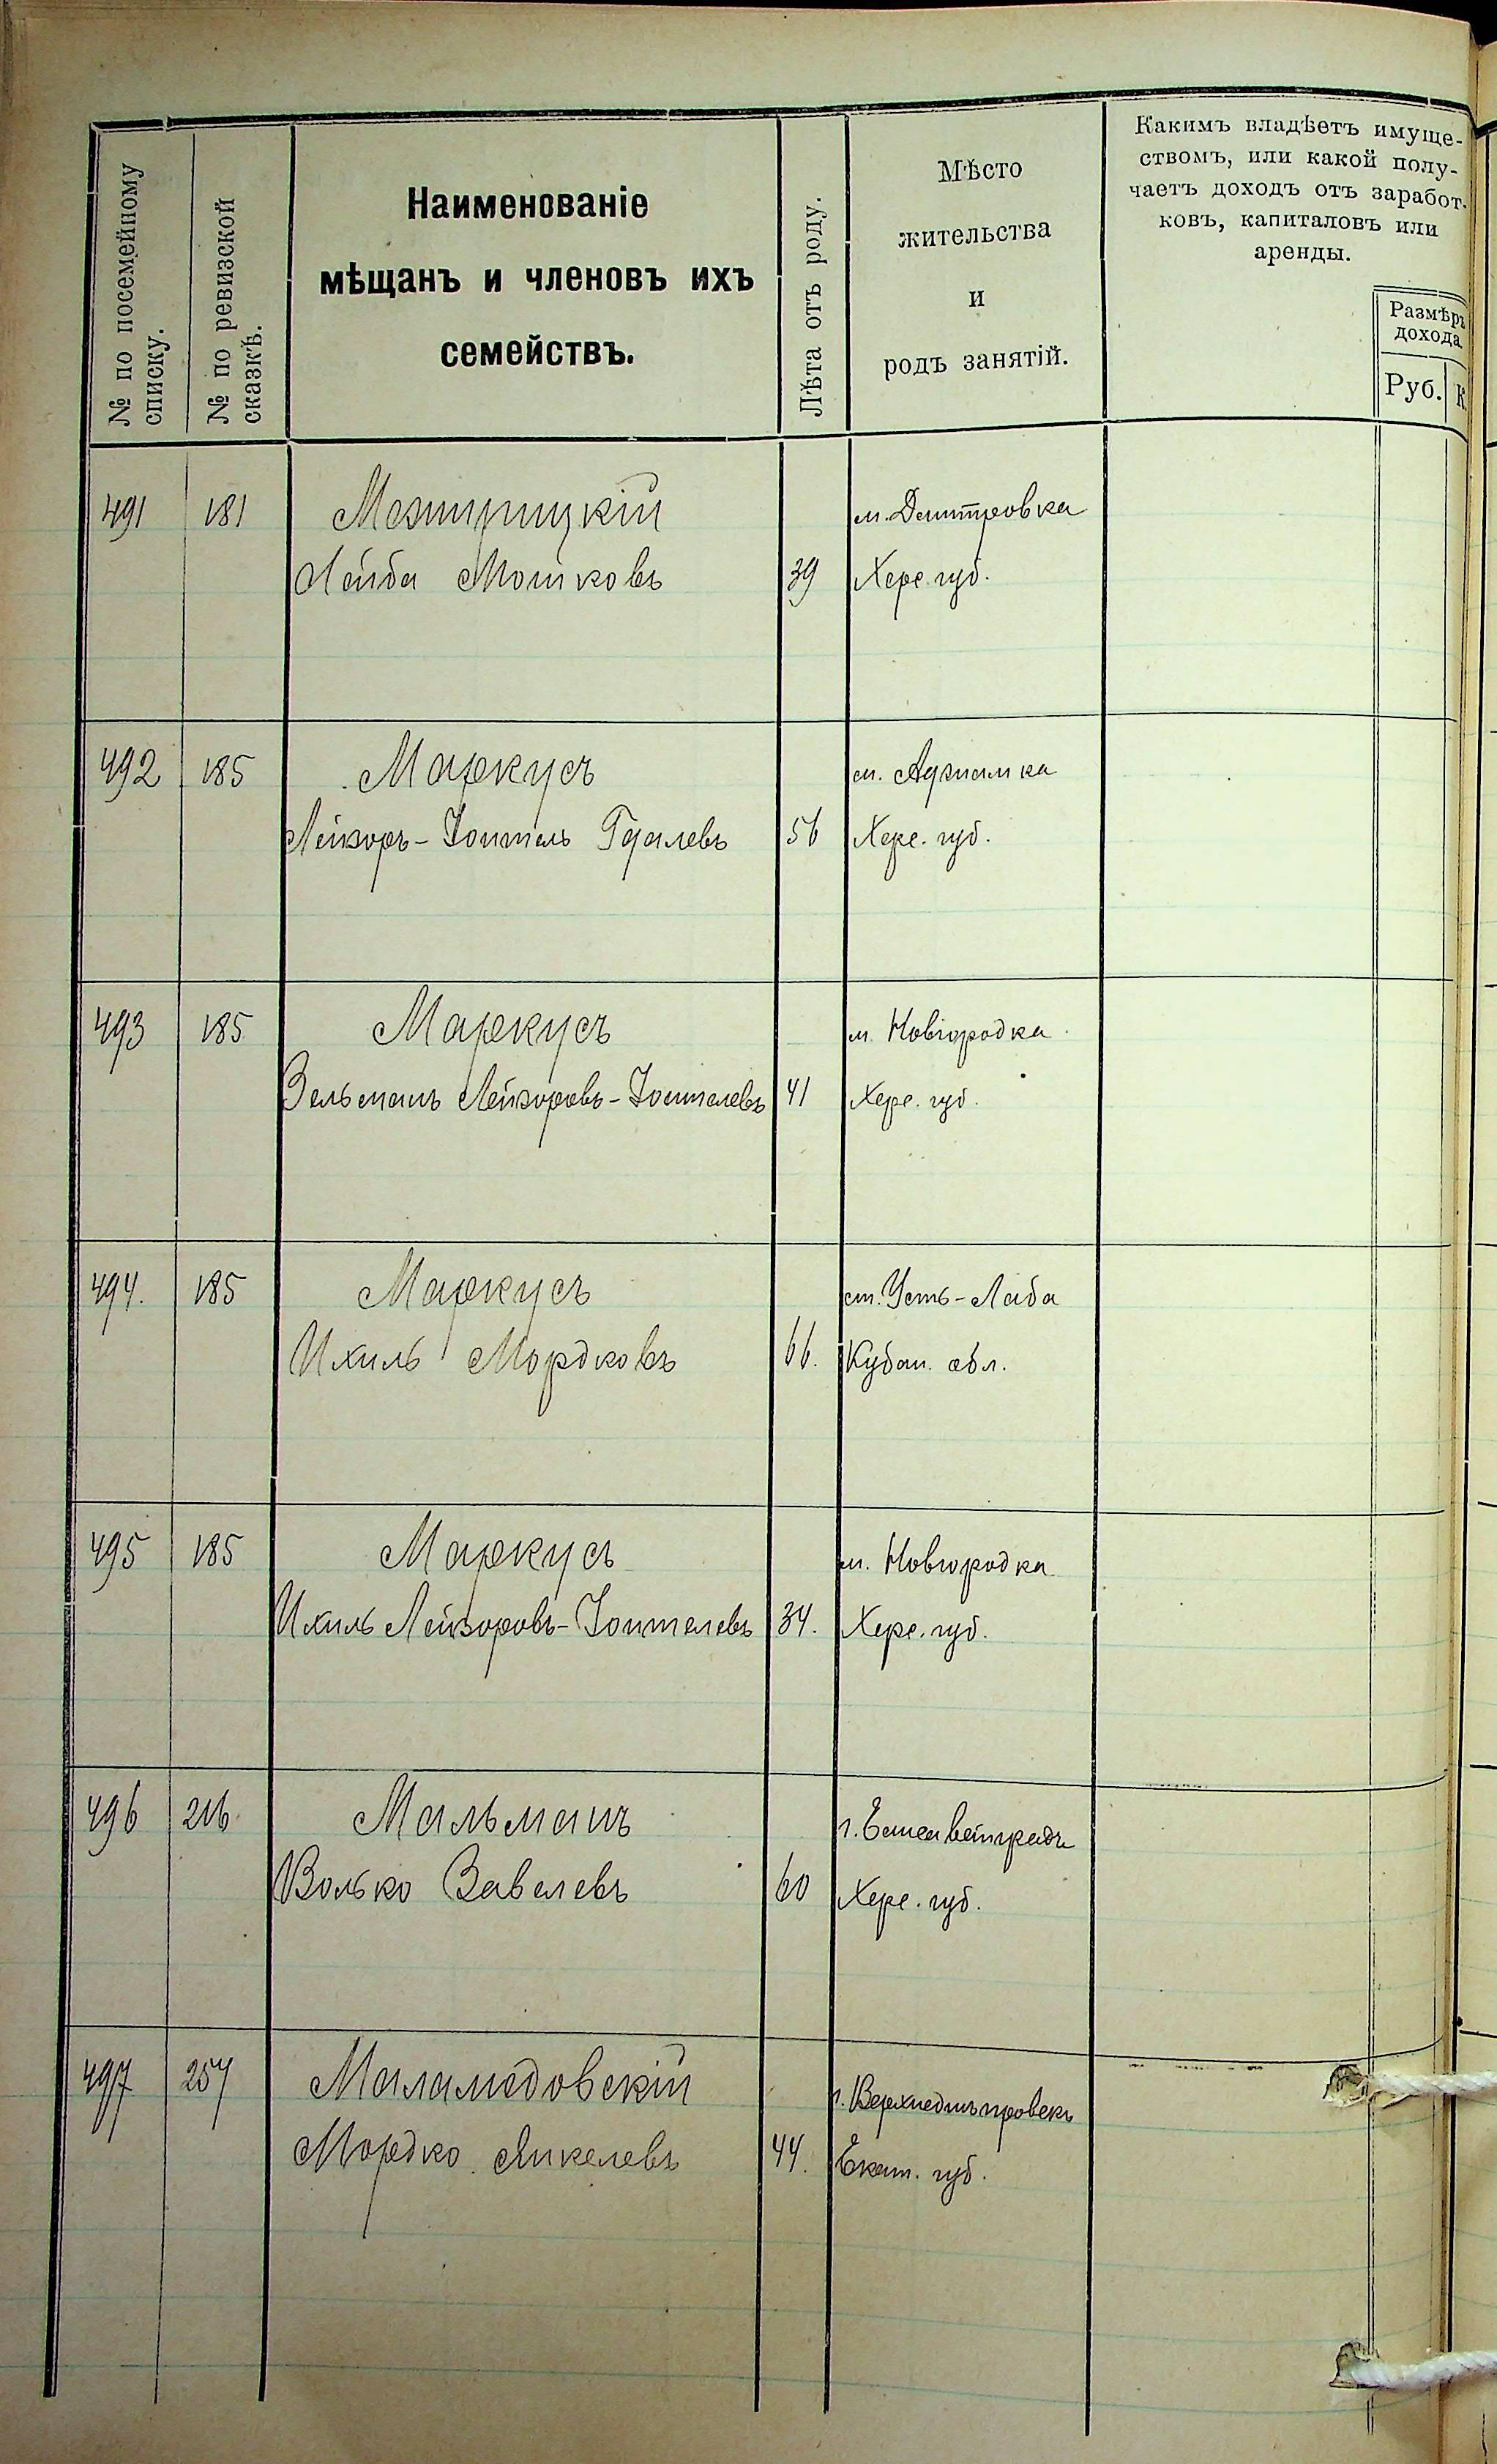 № по посемейному
списку.
№ по ревизской
сказкѣ.
Наименованіе
мѣщанъ и членовъ ихъ
семействъ.
Лѣта отъ роду.
Мѣсто
жительства
и
родъ занятій.
Какимъ владѣетъ имуще-
ствомъ, или какой полу-
чаетъ доходъ отъ заработ-
ковъ, капиталовъ или
аренды.
Размѣръ
дохода
Руб.
К
491 181 Мезирицкій м. Дмитровка
Лейба Мошковъ 39 Херс. губ.
492 185 Маркусъ м. Аджамка
Лейзоръ-Іоитель Гдалевъ 56 Херс. губ.
493 185 Маркусъ м. Новгородка
Зельманъ Лейзоровъ-Іоителевъ 41 Херс. губ.
494. 185 Маркусъ ст. Усть-Лаба
Ихиль Мордковъ 66. Кубан. обл.
495 185 Маркусъ м. Новгородка
Ихиль Лейзоровъ-Іоителевъ 34. Херс. губ.
496 216 Мальманъ г. Елисаветградъ
Волько Завелевъ 60 Херс. губ.
497 257 Маламедовскій г. Верхнеднѣпровскъ
Мордко Янкелевъ 44. Екат. губ.